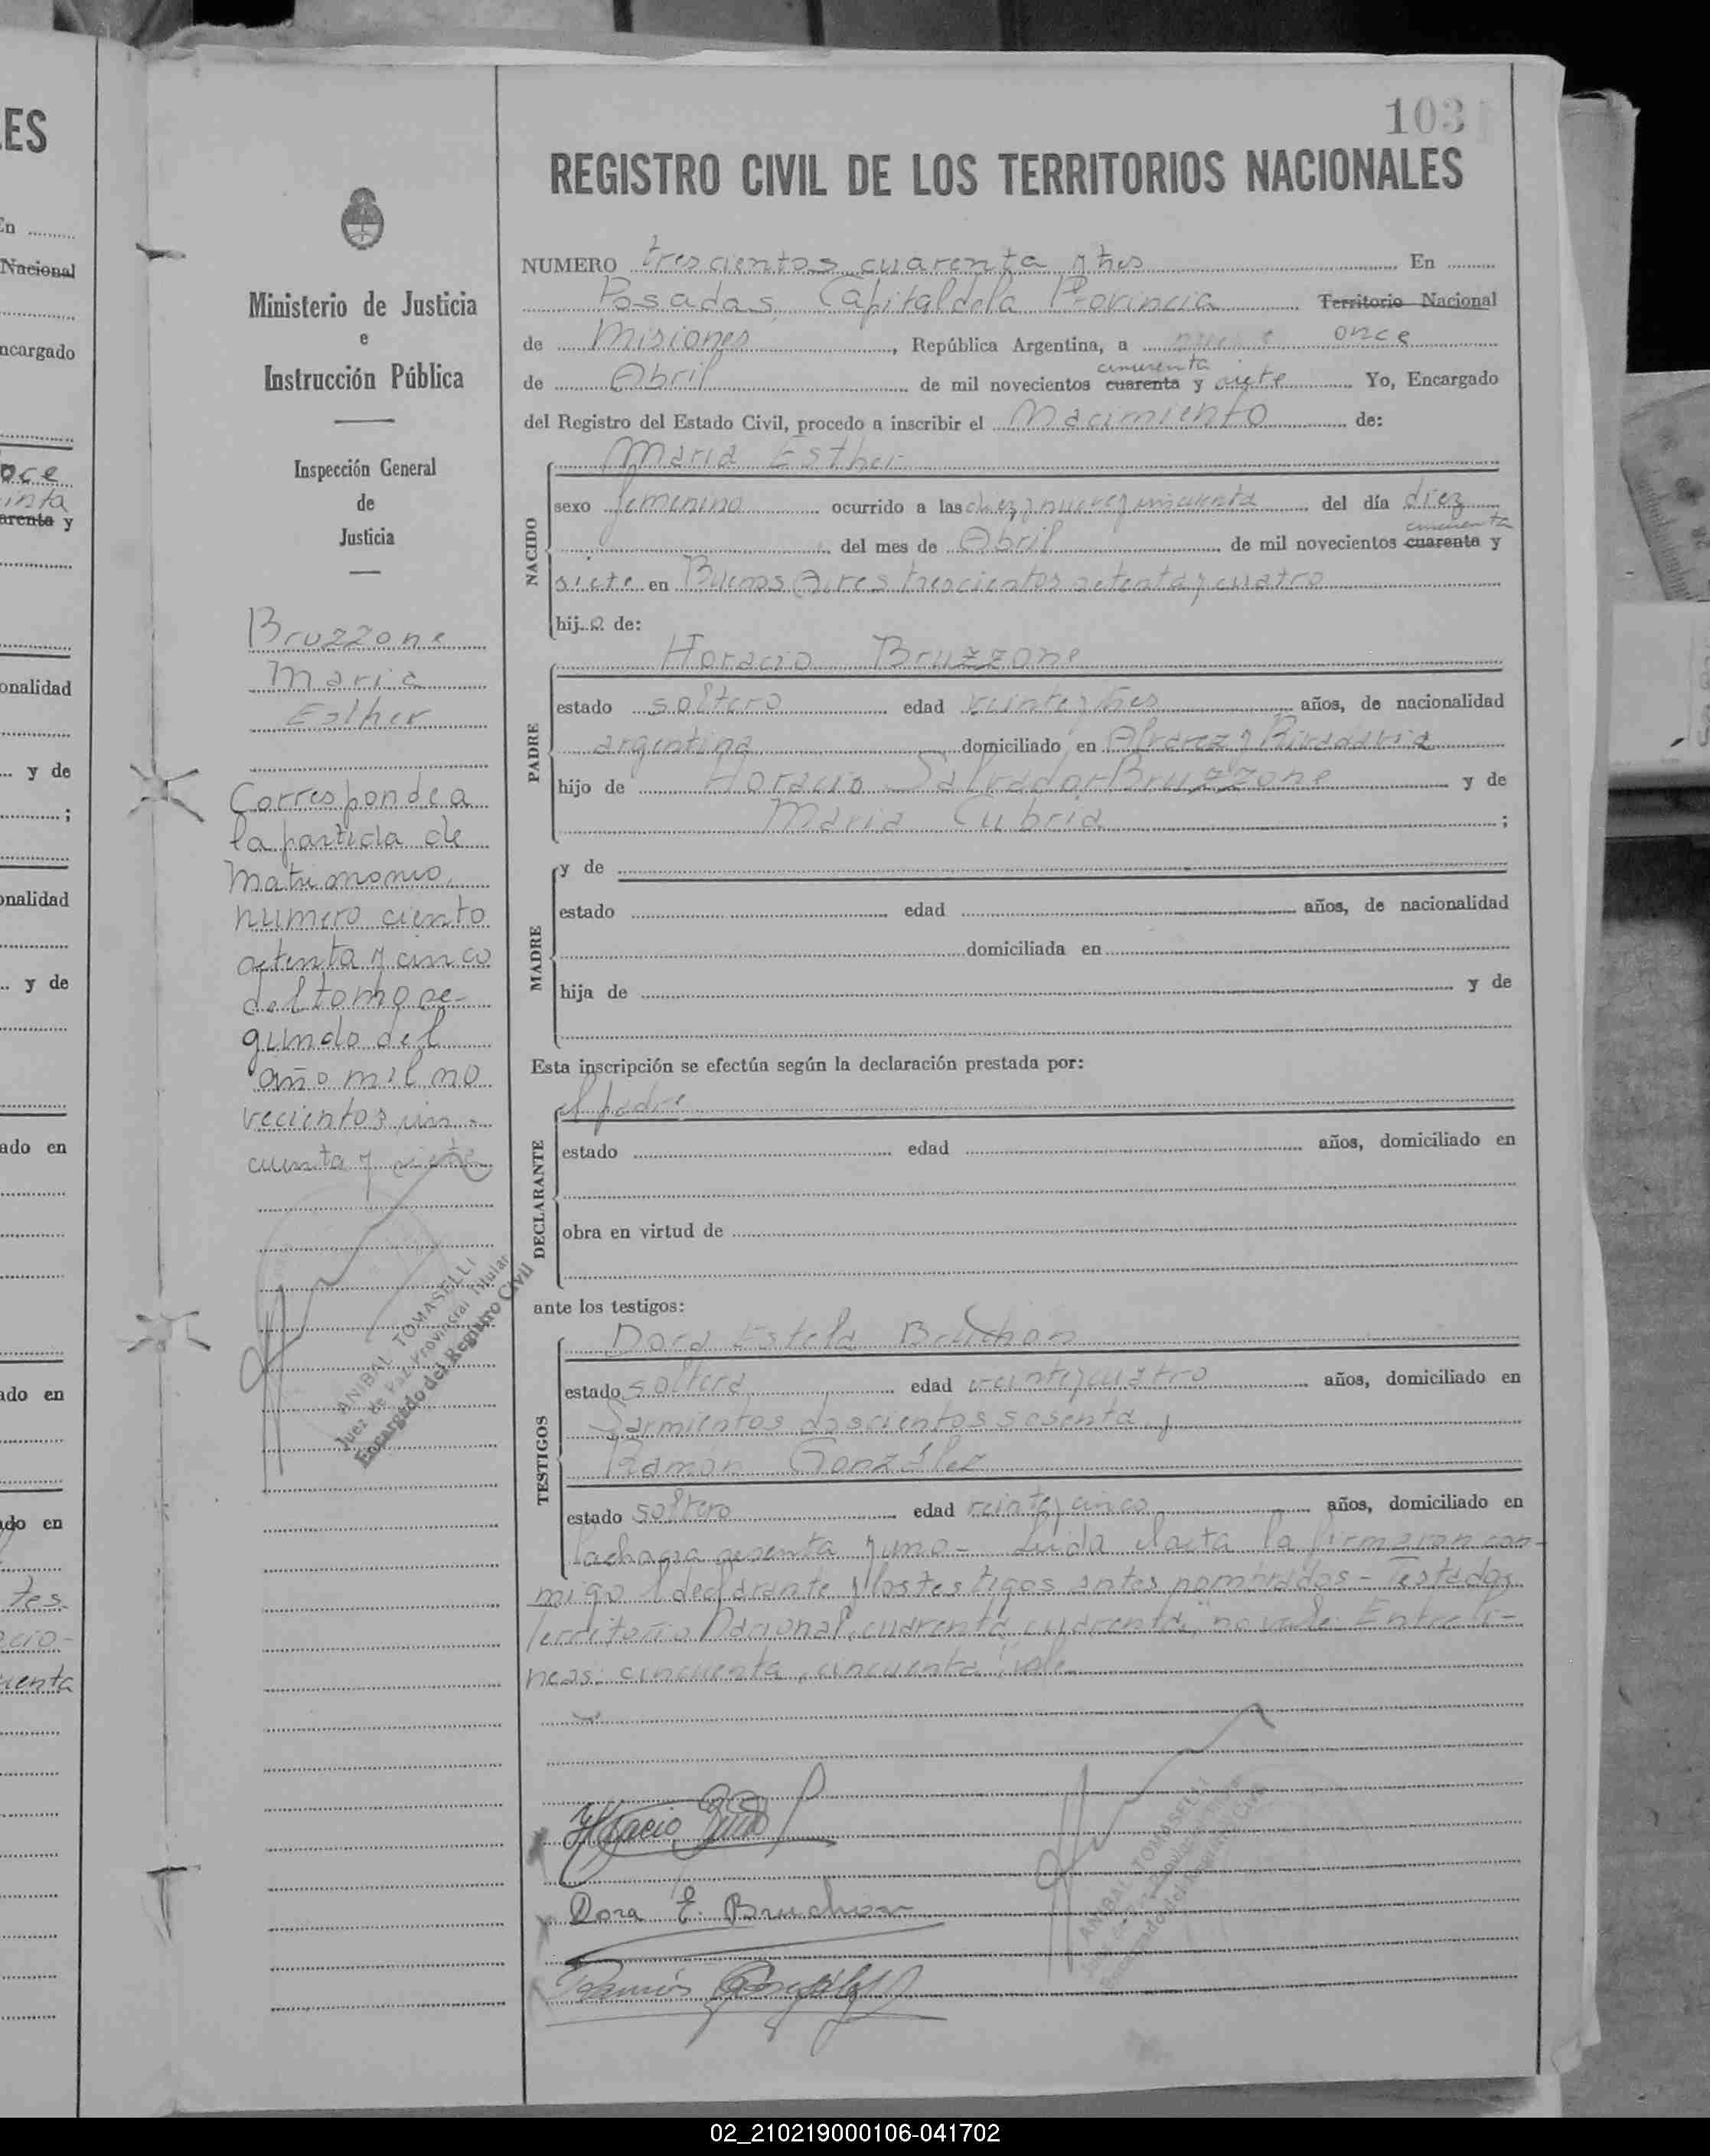 103
REGISTRO CIVIL DE LOS TERRITORIOS NACIONALES
NUMERO trescientos cuarenta y tres En
Posadas, Capital de la Provincia Territorio Nacional
de Misiones, República Argentina, a once
de Abril de mil novecientos cuarenta cincuenta y siete Yo, Encargado
del Registro del Estado Civil, procedo a inscribir el Nacimiento de:
NACIDO
Maria Esther
sexo femenino ocurrido a las diez y nueve y cincuenta del día diez
del mes de Abril de mil novecientos cuarenta cincuenta y
siete en Buenos Aires trescientos setenta y cuatro
hija de:
PADRE
Horacio Bruzzone
estado soltero edad veinte y tres años, de nacionalidad
argentina domiciliado en Alvarez y Rivadavia
hijo de Horacio Salvador Bruzzone y de
Maria Cubria ;
MADRE
y de
estado edad años, de nacionalidad
domiciliada en
hija de y de
Esta inscripción se efectúa según la declaración prestada por:
DECLARANTE
el padre
estado edad años, domiciliado en
obra en virtud de
ante los testigos:
TESTIGOS
Dora Estela Bruchon
estado soltera edad veinte y cuatro años, domiciliado en
Sarmientos doscientos sesenta y
Ramón González
estado soltero edad veinte y cinco años, domiciliado en
la chacra sesenta y uno - Leida el acta la firmaron con-
migo el declarante y los testigos antes nombrados - Testados
Territorio Nacional, cuarenta, cuarenta, no vale. Entre li-
neas: cincuenta, cincuenta: vale
Horacio
Dora E. Bruchon
Ramón González
ANIBAL TOMASELLI
Ministerio de Justicia
e
Instrucción Pública
Inspección General
de
Justicia
Bruzzone
Maria
Esther
Corresponde a
la partida de
Matrimonio,
numero ciento
setenta y cinco
del tomo se-
gundo del
año mil no
vecientos cin-
cuenta y siete
ANIBAL TOMASELLI
Juez de Paz Provincial Titular
Encargado del Registro Civil
ES
En
Nacional
ncargado
oce
arenta y
onalidad
y de
;
onalidad
y de
ado en
ado en
ado en
tes
cio-
uenta
02_210219000106-041702